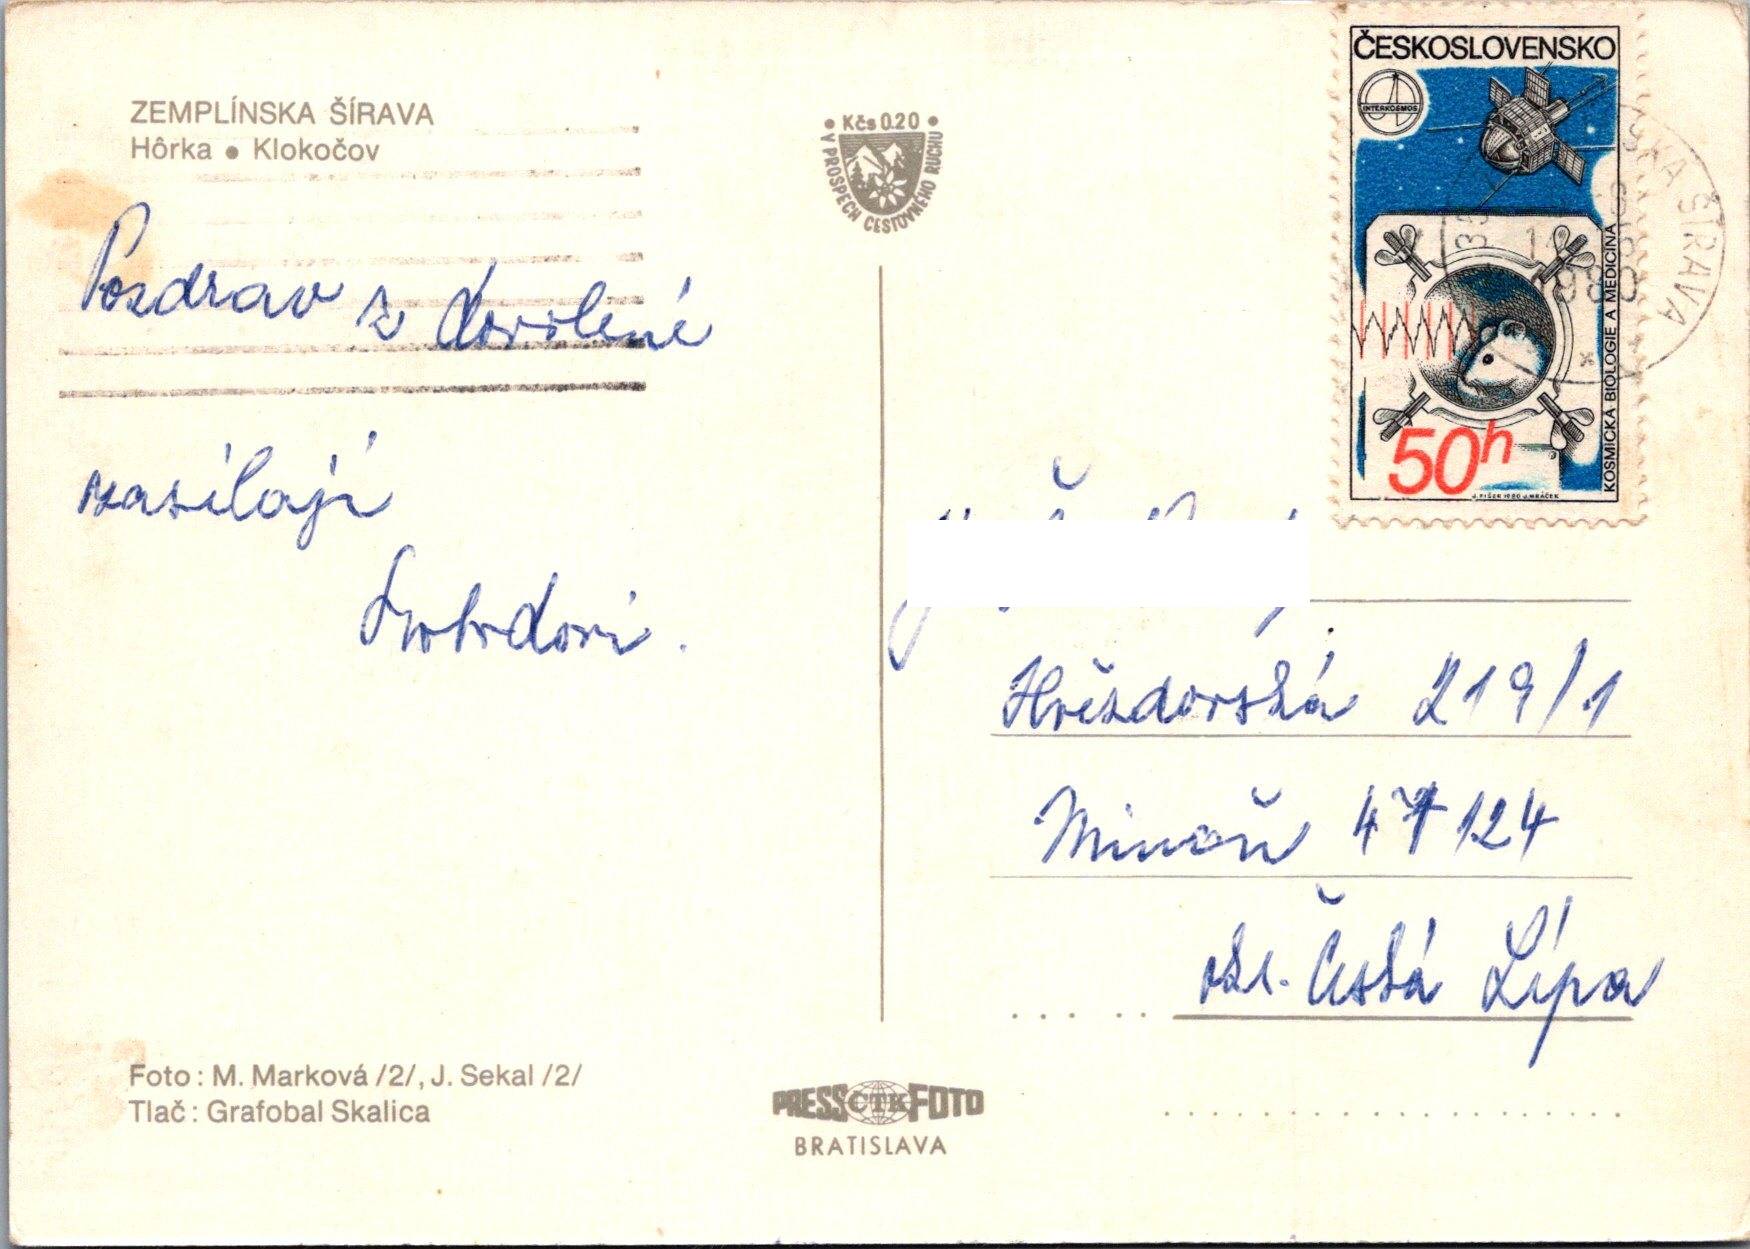 ZEMPLÍNSKA ŠÍRAVA
Hôrka • Klokočov
• Kčs 0.20 •
V PROSPECH CESTOVNÉHO RUCHU
ČESKOSLOVENSKO
INTERKOSMOS
KOSMICKÁ BIOLOGIE A MEDICÍNA
50h
J. FIŠER 1980 J. MRÁČEK
ŠÍRAVA
Pozdrav z dovolené
zasílají
Svobodovi.
Hvězdovská 219/1
Mimoň 47124
okr. Česká Lípa
Foto: M. Marková /2/, J. Sekal /2/
Tlač: Grafobal Skalica
PRESS ČTK FOTO
BRATISLAVA